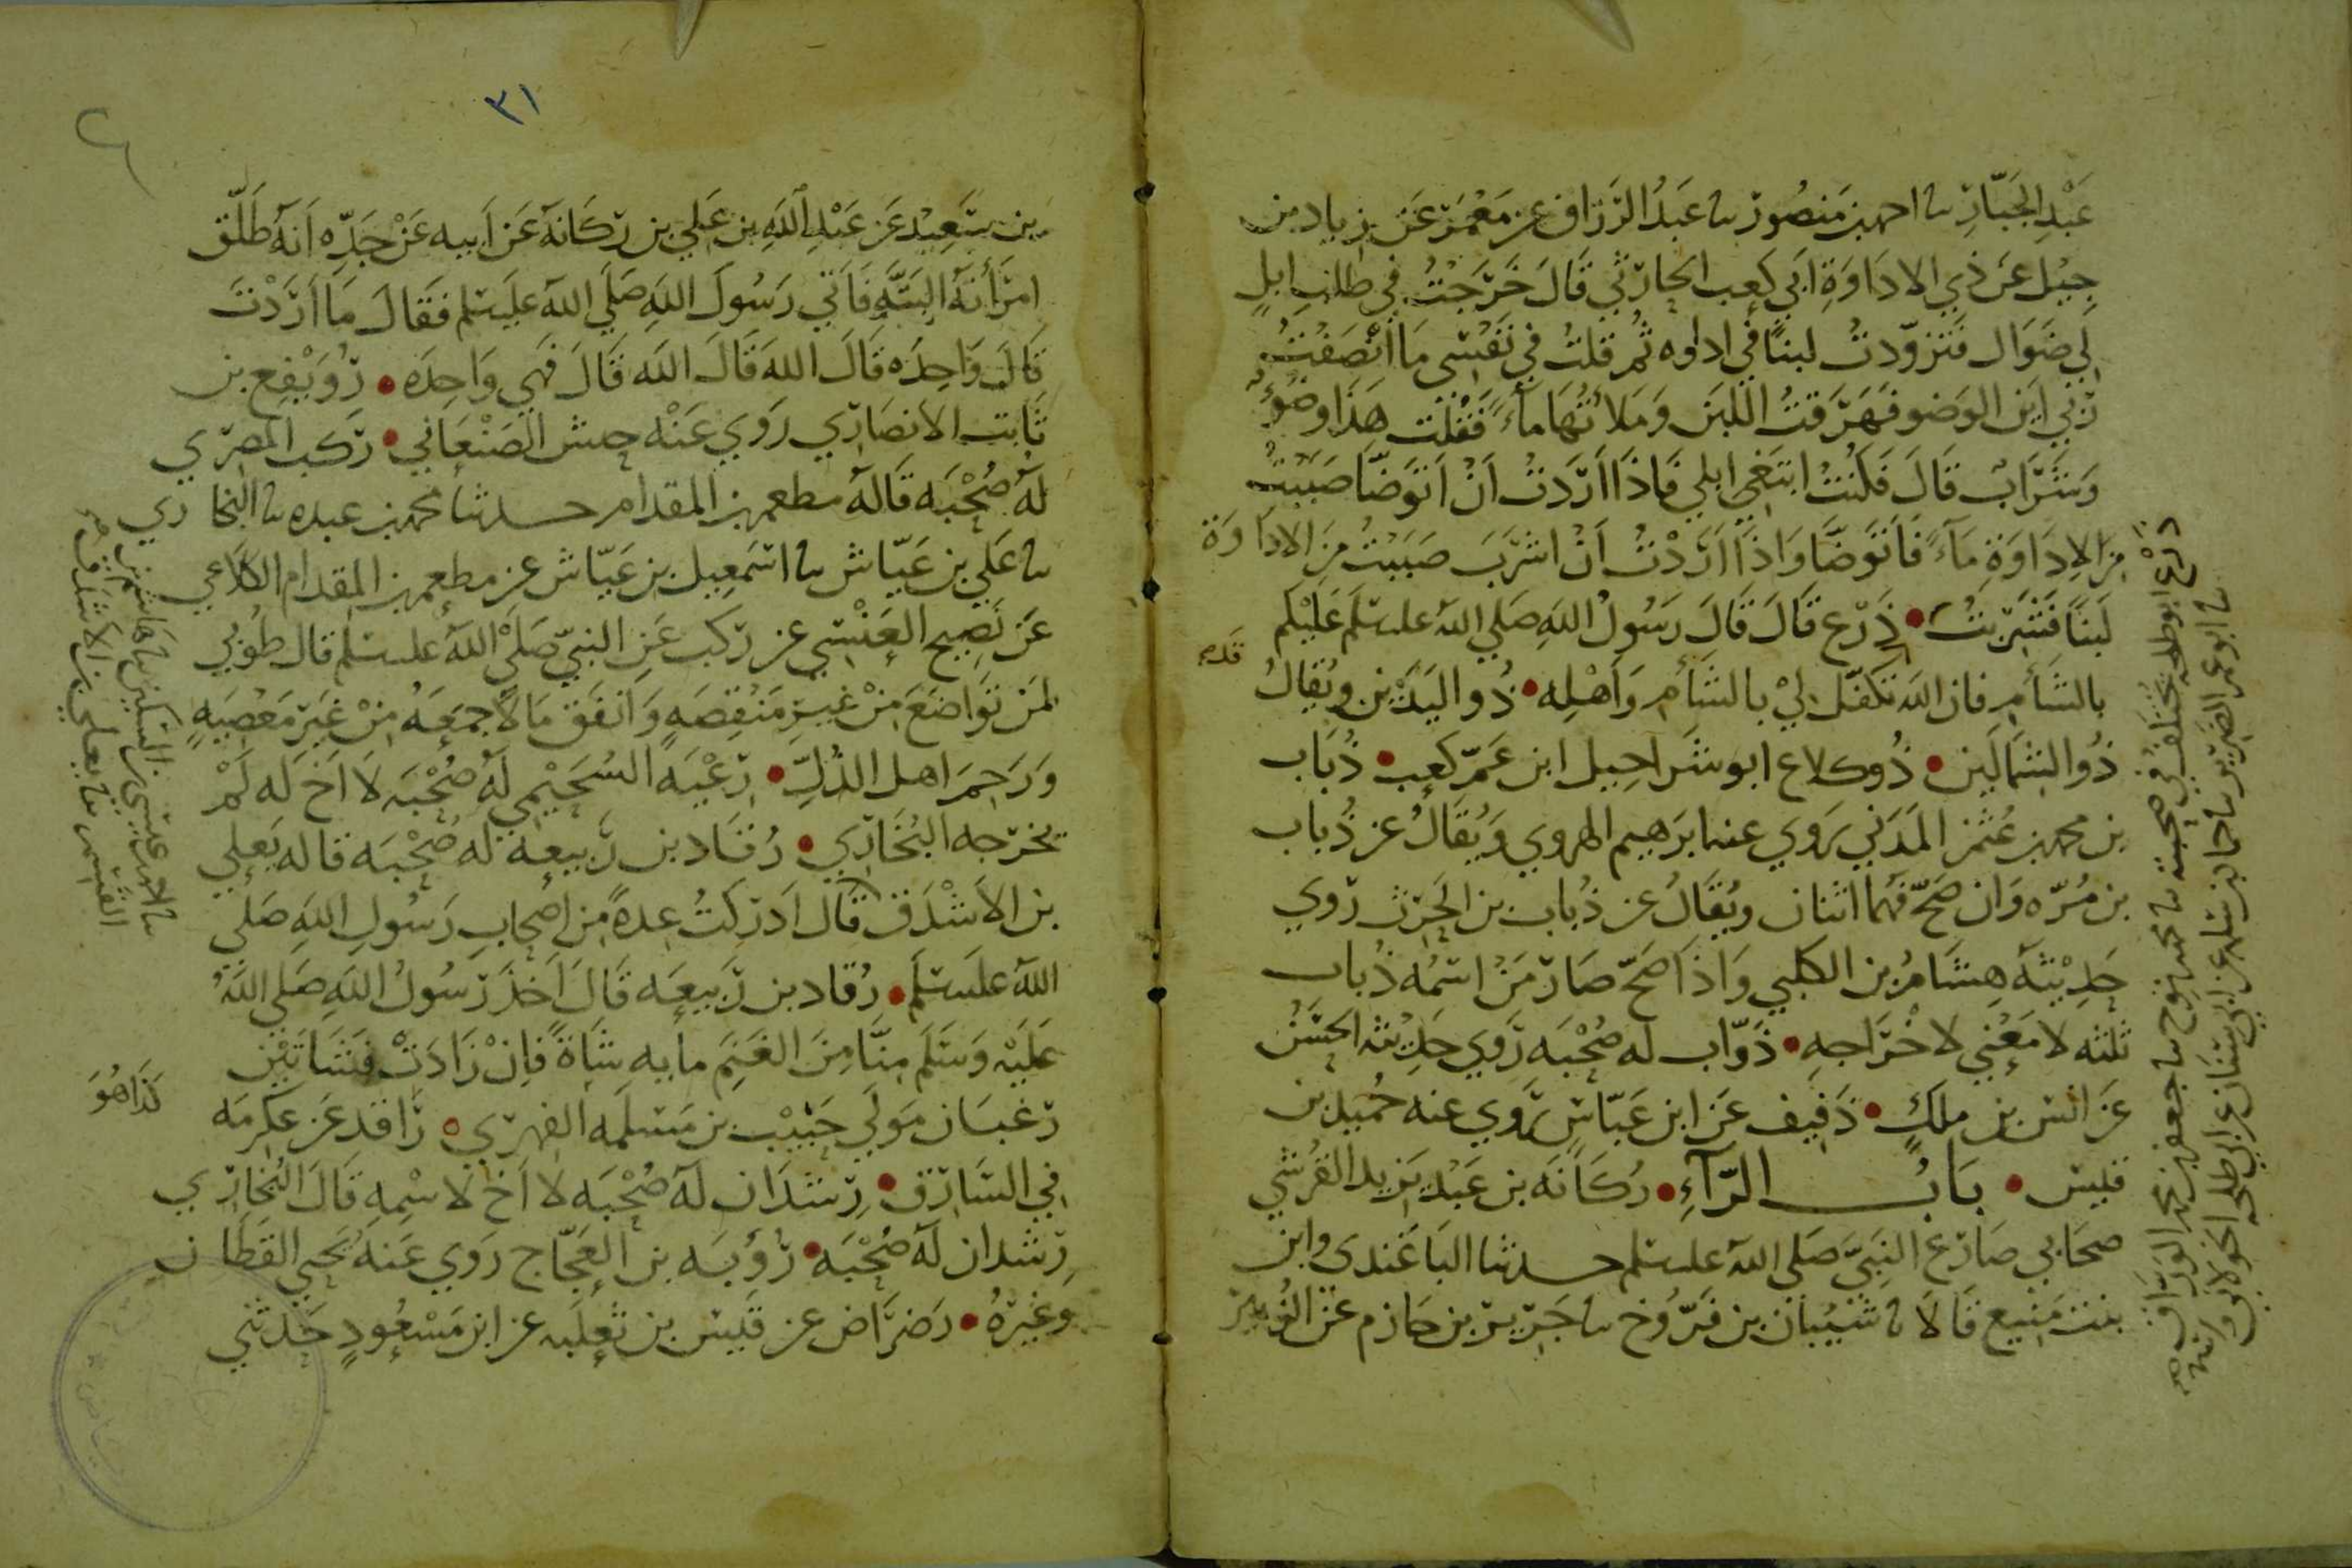 عَبْدِ الجَبّارِ نا احمد بن مَنصُور نا عبدُ الرَزاق عن مَعْمَر عَن زياد بن
جِيل عَن ذي الادَاوَةِ ابي كعب الحارثي قَالَ خَرَجْتُ في طلب ابلٍ
لي ضَوَال فتزوّدتُ لبنًا في اداوه ثُم قلتُ في نفسي مَا أنْصَفْتُ
رَبي اين الوَضو فهَرَقتُ اللبَن وَمَلأتُهَا مآءً فَقُلْت هَذا وضُوءٌ
وَشَرَابٌ قَالَ فَكُنْتُ ابتَغي ابلي فاذا أرَدتُ اَنْ اتَوَضّا صَبَبْتُ
مِنَ الاِدَاوَةِ مَآءً فَاتَوَضَّا وَاذَا اَرَدْتُ اَنْ اشرَبَ صَبَبْتُ مِنَ الادَاوَة
لَبَنًا فَشَرِبتُ • ذَرْع قَالَ قَالَ رَسُولُ اللهِ صَلي اللهُ عليه سلم عَلَيْكم
بالشَأم فان الله تكفّل لِيْ بالشَأم وَأهْلِه • ذُو اليَدَيْن ويُقالُ
ذُو الشمَالَين • ذُوكلاع ابو شَراحِيل ابن عَمّ كَعب • ذُبَاب
بن محمد بن عُثمن المَدَني يَروي عنه ابرَهيم الهروي وَيُقَالُ عن ذُباب
بن مُرّه وَان صَحّ فهُما اثنان ويُقَالُ عن ذُباب بن الحَرث رَوي
حَدِيْثَهُ هِشَامُ بن الكلبي وَاذا صَحّ صَارَ مَن اسْمُه ذُباب
ثلثه لا مَعْني لاخْرَاجِهِ • ذوّاب له صُحْبَه رَوي حَدِيْثه الحَسَنُ
عَن انس بن ملك • ذَفِيف عَن ابن عَبّاسٍ رَوي عنه حُميد بن
قيس • بَابُ الرّآءِ • رُكَانَه بن عَبْد يَزيد القُرَشي
صحَابي صَارَعَ النبيَّ صَلي الله عليه سلم حدثنا البَاغَندي وابن
بنت مَنيع قَالا نا شَيْبَان بن فَرّوخ نا جَرير بن حَازم عَن الزُّبير
قدم
٣١
بن سَعِيْد عَن عَبْدِ اللهِ بن عَلي بن رُكَانَه عَن اَبيه عَنْ جَدِّه اَنهُ طَلّق
امرَأتَهُ البَتّه فَاَتي رَسُولَ اللهِ صَلي اللهُ عليه سلم فقَالَ مَا أرَدْتَ
قَالَ وَاحِدَه قَالَ اللهَ قَالَ اللهَ قَالَ فهي وَاحِدَه • رُوَيْفِع بن
ثَابت الانصَاري رَوي عَنْه حنش الصَنْعَاني • رَكب المصري
لهُ صُحْبَه قَاله مطعم بن المقدام حدثنا محمد بن عبده نا البخاري
نا عَلي بن عَيّاش نا اسمعيل بن عيّاش عن مطعم بن المقدام الكلاعي
عَن نَصِيح العَنْسي عن رَكب عَن النبيّ صَلي اللهُ عليه سلم قال طُوبي
لمَن تَوَاضَعَ مِنْ غير مَنْقِصَه وَانفَق مَالاً جمعَهُ مِنْ غَير مَعْصِيَهٍ
وَرَحِمَ اهل الذُلِّ • رِعْيَه السُحَيْمي لَهُ صُحْبَه لا اَخ لَه لَمْ
يخرجه البُخَاري • رُقاد بن رَبيعه له صُحْبَه قاله يَعلي
بن الاَشْدَق قَال اَدرَكتُ عِدةً مِن اصحاب رَسُولِ اللهِ صَلي
اللهُ عليه سَلم • رُقاد بن رَبيعَه قَالَ اَخَذَ رَسُولُ اللهِ صَلي اللهُ
عَلَيْه وَسَلَم مِنّا مِنَ الغَنَم مايه شَاةً فَاِنْ زَادَتْ فشَاتَيْن
رَغبَان مَوْلَي حَبيْب بن مَسلَمه الفهري • رَاقد عَن عكرمَه
في السَارق • رِشدَان لهُ صُحْبَه لا اَخ لاسْمِهِ قَالَ البُخاري
رِشدان لَهُ صُحْبَه • رُؤبَه بن العَجّاج رَوي عَنهُ يحيي القَطَّان
وغَيرُه • رَضرَاض عن قَيس بن ثَعلَبه عن ابن مَسْعُودٍ حَدثني
كذا هُوَ